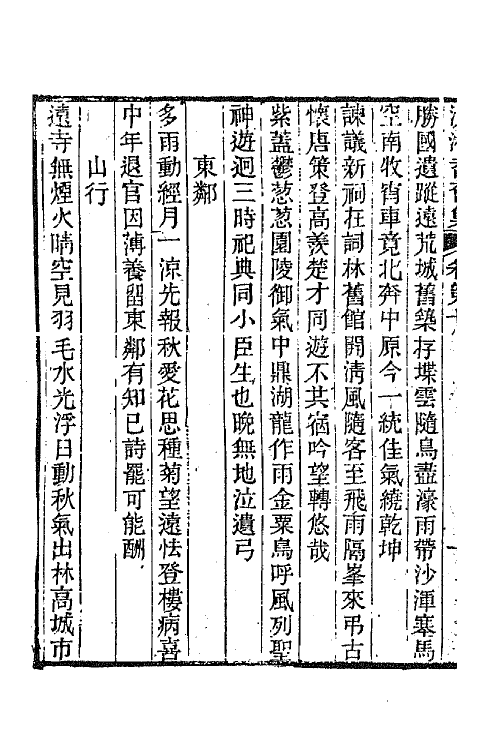 勝國遺蹤遠荒城舊築存堞雲隨鳥盡濠雨帶沙渾塞馬
空南牧宵車竟北奔中原今一統佳氣繞乾坤
諫議新祠在詞林舊館開淸風隨客至飛雨隔峯來弔古
懷唐策登高羨楚才同遊不共宿吟望轉悠哉
紫蓋鬱葱葱園陵御氣中鼎湖龍作雨金粟鳥呼風列聖
神遊迥三時祀典同小臣生也晚無地泣遺弓
東鄰
多雨動經月一涼先報秋愛花思種菊望遠怯登樓病喜
中年退官因薄養留東鄰有知已詩罷可能酬
山行
遠寺無煙火晴空見羽毛水光浮日動秋氣出林高城市